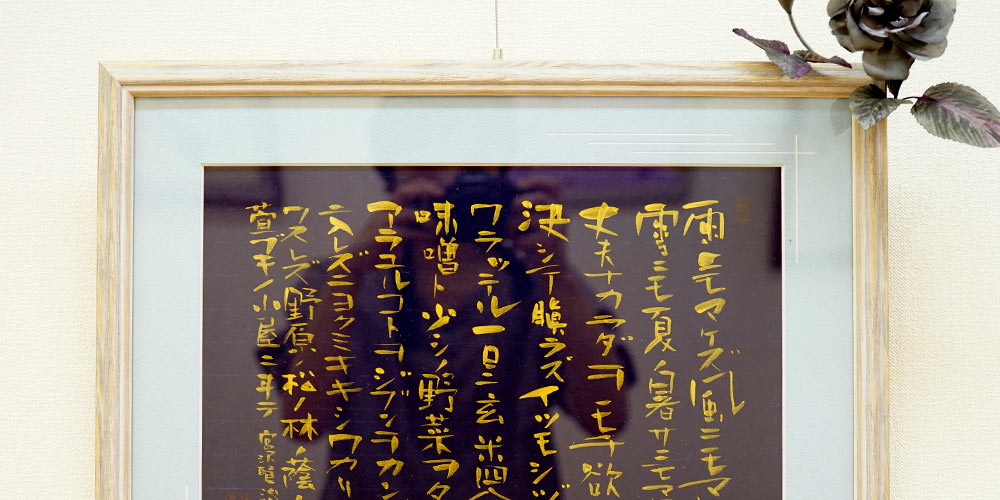 雨ニモマケズ風ニモマ
雪ニモ夏ノ暑サニモマ
丈夫ナカラダヲモチ欲
決シテ瞋ラズイツモシヅ
ワラッテル一日ニ玄米四合
味噌ト少シノ野菜ヲタ
アラユルコトヲジブンヲカン
ニ入レズニヨクミキキシワカリ
ワスレズ野原ノ松ノ林ノ蔭ノ
萱ブキノ小屋ニヰテ 宮沢賢治